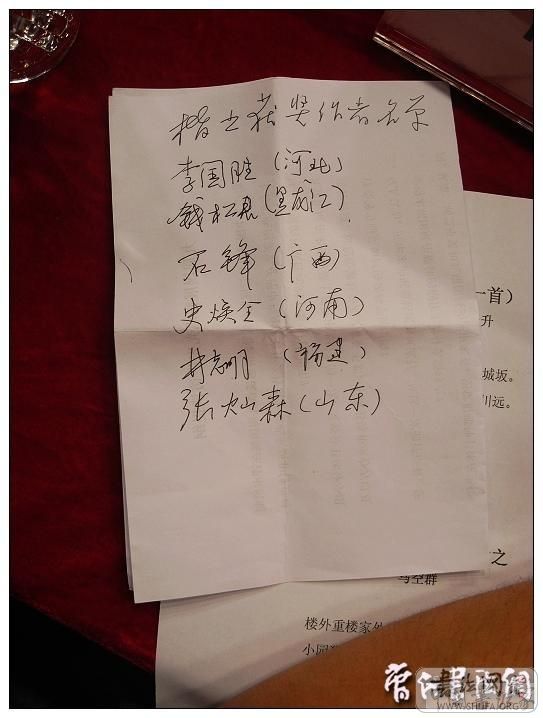 楷书获奖作者名单
李国胜（河北）
钱松君（黑龙江）
石锋（广西）
史焕全（河南）
林志明（福建）
张灿森（山东）
一首）
升
城坂。
川远。
之
与空群
楼外重楼家外
小园
书法网
WWW.SHUFA.ORG